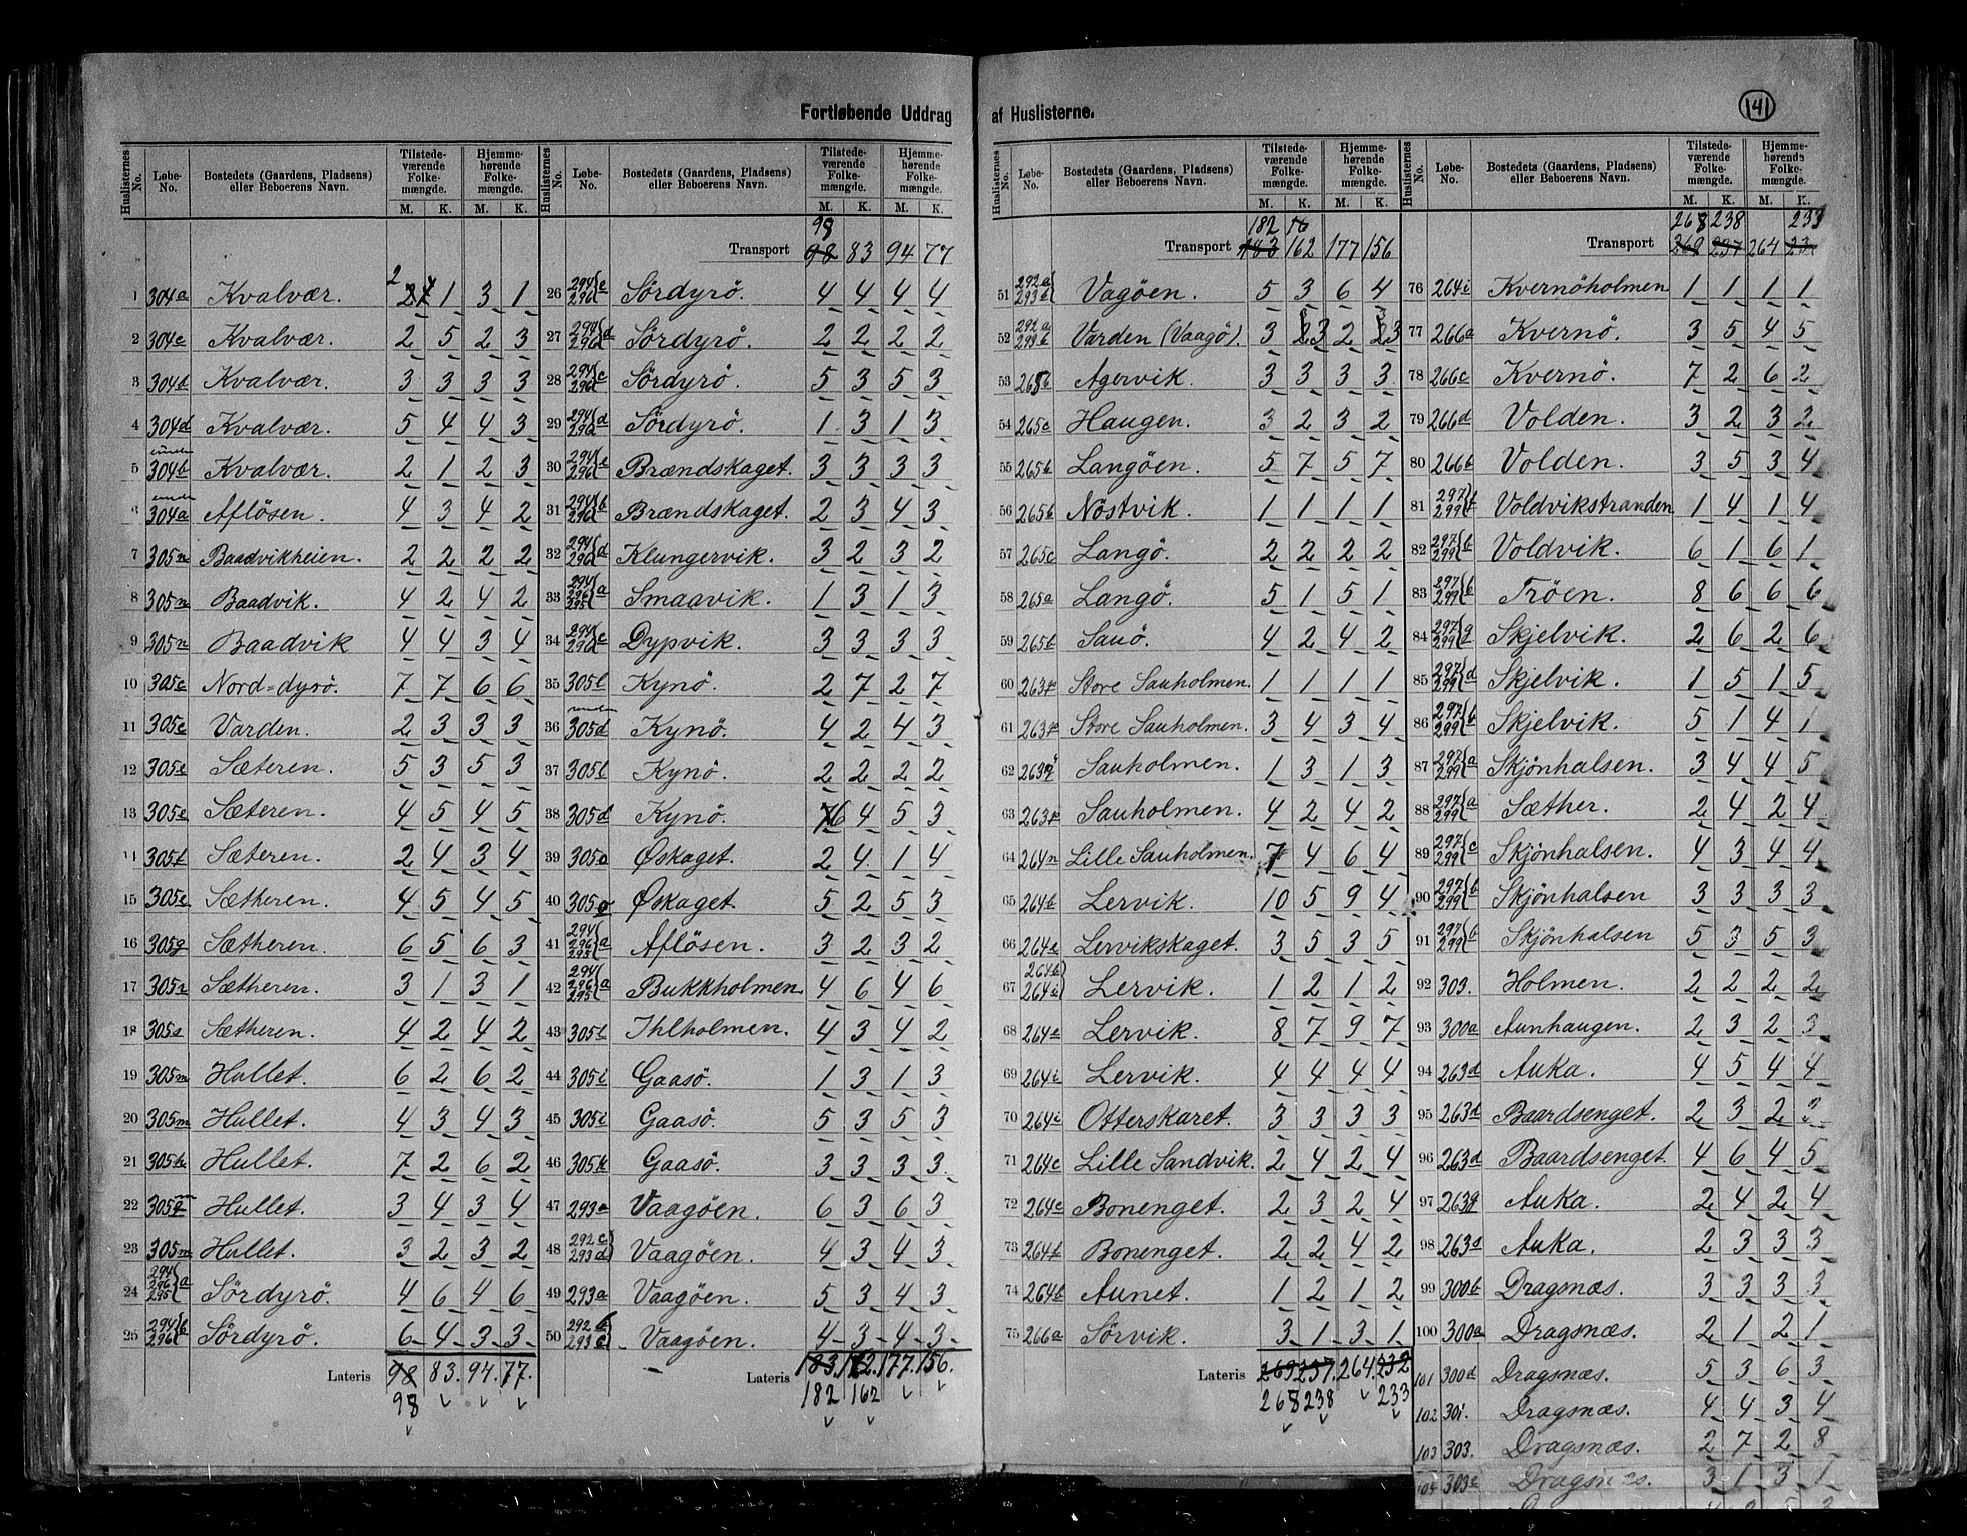 Fortløbende Uddrag af Huslisterne.
141
Huslisternes No. | Løbe-No. | Bostedets (Gaardens, Pladsens) eller Beboerens Navn. | Tilstedeværende Folkemængde. M. K. | Hjemmehørende Folkemængde. M. K.
1 304a Kvalvær. 2 1 3 1
2 304c Kvalvær. 2 5 2 3
3 304d Kvalvær. 3 3 3 3
4 304d Kvalvær. 5 4 4 3
5 304b Kvalvær. 2 1 2 3
6 304a Aflösen. 4 3 4 2
7 305n Baadvikheien. 2 2 2 2
8 305n Baadvik. 4 2 4 2
9 305n Baadvik 4 4 3 4
10 305c Nord=dyrö. 7 7 6 6
11 305c Varden. 2 3 3 3
12 305e Sæteren. 5 3 5 3
13 305e Sæteren. 4 5 4 5
14 305f Sæteren. 2 4 3 4
15 305e Sætheren. 4 5 4 5
16 305g Sætheren. 6 5 6 3
17 305s Sætheren. 3 1 3 1
18 305s Sætheren. 4 2 4 2
19 305m Hullet. 6 2 6 2
20 305m Hullet. 4 3 4 3
21 305 Hullet. 7 2 6 2
22 305 Hullet. 3 4 3 4
23 305m Hullet. 3 2 3 2
24 294 296 295 a Sördyrö. 4 6 4 6
25 294 296 b Sördyrö. 6 4 3 3
Lateris 98 83. 94. 77.
98
Transport 98 98 83 94 77
26 294 296 e Sördyrö. 4 4 4 4
27 294 296 d Sördyrö. 2 2 2 2
28 294 296 c Sördyrö. 5 3 5 3
29 294 296 d Sördyrö. 1 3 1 3
30 294 296 e Brændskaget. 3 3 3 3
31 294 296 b Brændskaget. 2 3 4 3
32 294 296 d Klungervik. 3 2 3 2
33 294 296 295 a Smaavik. 1 3 1 3
34 294 296 c Dypvik. 3 3 3 3
35 305l Kynö. 2 7 2 7
36 305d Kynö. 4 2 4 3
37 305l Kynö. 2 2 2 2
38 305d Kynö. 6 4 5 3
39 305o Øskaget. 2 4 1 4
40 305o Øskaget. 5 2 5 3
41 294 296 295 a Aflösen. 3 2 3 2
42 294 296 295 a Bukkholmen. 4 6 4 6
43 305l Ihlholmen. 4 3 4 2
44 305i Gaasö. 1 3 1 3
45 305i Gaasö. 5 3 5 3
46 305k Gaasö. 3 3 3 3
47 293a Vaagöen. 6 3 6 3
48 292c 293d Vaagöen. 4 3 4 3
49 293a Vaagöen. 5 3 4 3
50 292b 293c Vaagöen. 4 3 4 3
Lateris 183. 162. 177. 156.
182 162
Transport 182 183 162 177 156
51 292a 293b Vagöen. 5 3 6 4
52 292a 293b Varden (Vaagö). 3 3 2 3
53 265b Agervik. 3 3 3 3
54 265c Haugen. 3 2 3 2
55 265b Langöen. 5 7 5 7
56 265b Nöstvik. 1 1 1 1
57 265c Langö. 2 2 2 2
58 265a Langö. 5 1 5 1
59 265b Sauö. 4 2 4 2
60 263p Store Sauholmen. 1 1 1 1
61 263p Store Sauholmen. 3 4 3 4
62 263q Sauholmen. 1 3 1 3
63 263p Sauholmen. 4 2 4 2
64 264n Lille Sauholmen. 7 4 6 4
65 264b Lervik. 10 5 9 4
66 264e Lervikskaget. 3 5 3 5
67 264b 264i Lervik. 1 2 1 2
68 264e Lervik. 8 7 9 7
69 264i Lervik. 4 4 4 4
70 264i Otterskaret. 3 3 3 3
71 264c Lille Sandvik. 2 4 2 4
72 264c Bonenget. 2 3 2 4
73 264f Bonenget. 2 2 4 2
74 264b Aunet. 1 2 1 2
75 266a Sörvik. 3 1 3 1
Lateris 269 237. 264. 232
268 238 233
Transport 268 238 233
269 237 264
76 264i Kvernöholmen 1 1 1 1
77 266a Kvernö. 3 5 4 5
78 266c Kvernö. 7 2 6 2
79 266d Volden. 3 2 3 2
80 266b Volden. 3 5 3 4
81 297 299 f Voldvikstranden 1 4 1 4
82 297 299 b Voldvik. 6 1 6 1
83 297 299 b Tröen. 8 6 6 6
84 297 299 g Skjelvik. 2 6 2 6
85 297 299 d Skjelvik. 1 5 1 5
86 297 299 b Skjelvik. 5 1 4 1
87 297 299 a Skjönhalsen. 3 4 4 5
88 297 299 a Sæther. 2 4 2 4
89 297 299 c Skjönhalsen. 4 3 4 4
90 297 299 b Skjönhalsen 3 3 3 3
91 297 299 b Skjönhalsen 5 3 5 3
92 303. Holmen. 2 2 2 2
93 300a Aunhaugen. 2 3 2 3
94 263d Auka. 4 5 4 4
95 263d Baardsenget. 2 3 2 3
96 263d Baardsenget. 4 6 4 5
97 263g Auka. 2 4 2 4
98 263d Auka. 2 3 3 3
99 300b Dragsnæs. 3 3 3 3
100 300a Dragsnæs. 2 1 2 1
101 300d Dragsnæs. 5 3 6 3
102 301. Dragsnæs. 4 4 3 4
103 303. Dragsnæs. 2 7 2 8
104 303c Dragsnæs. 3 1 3 1